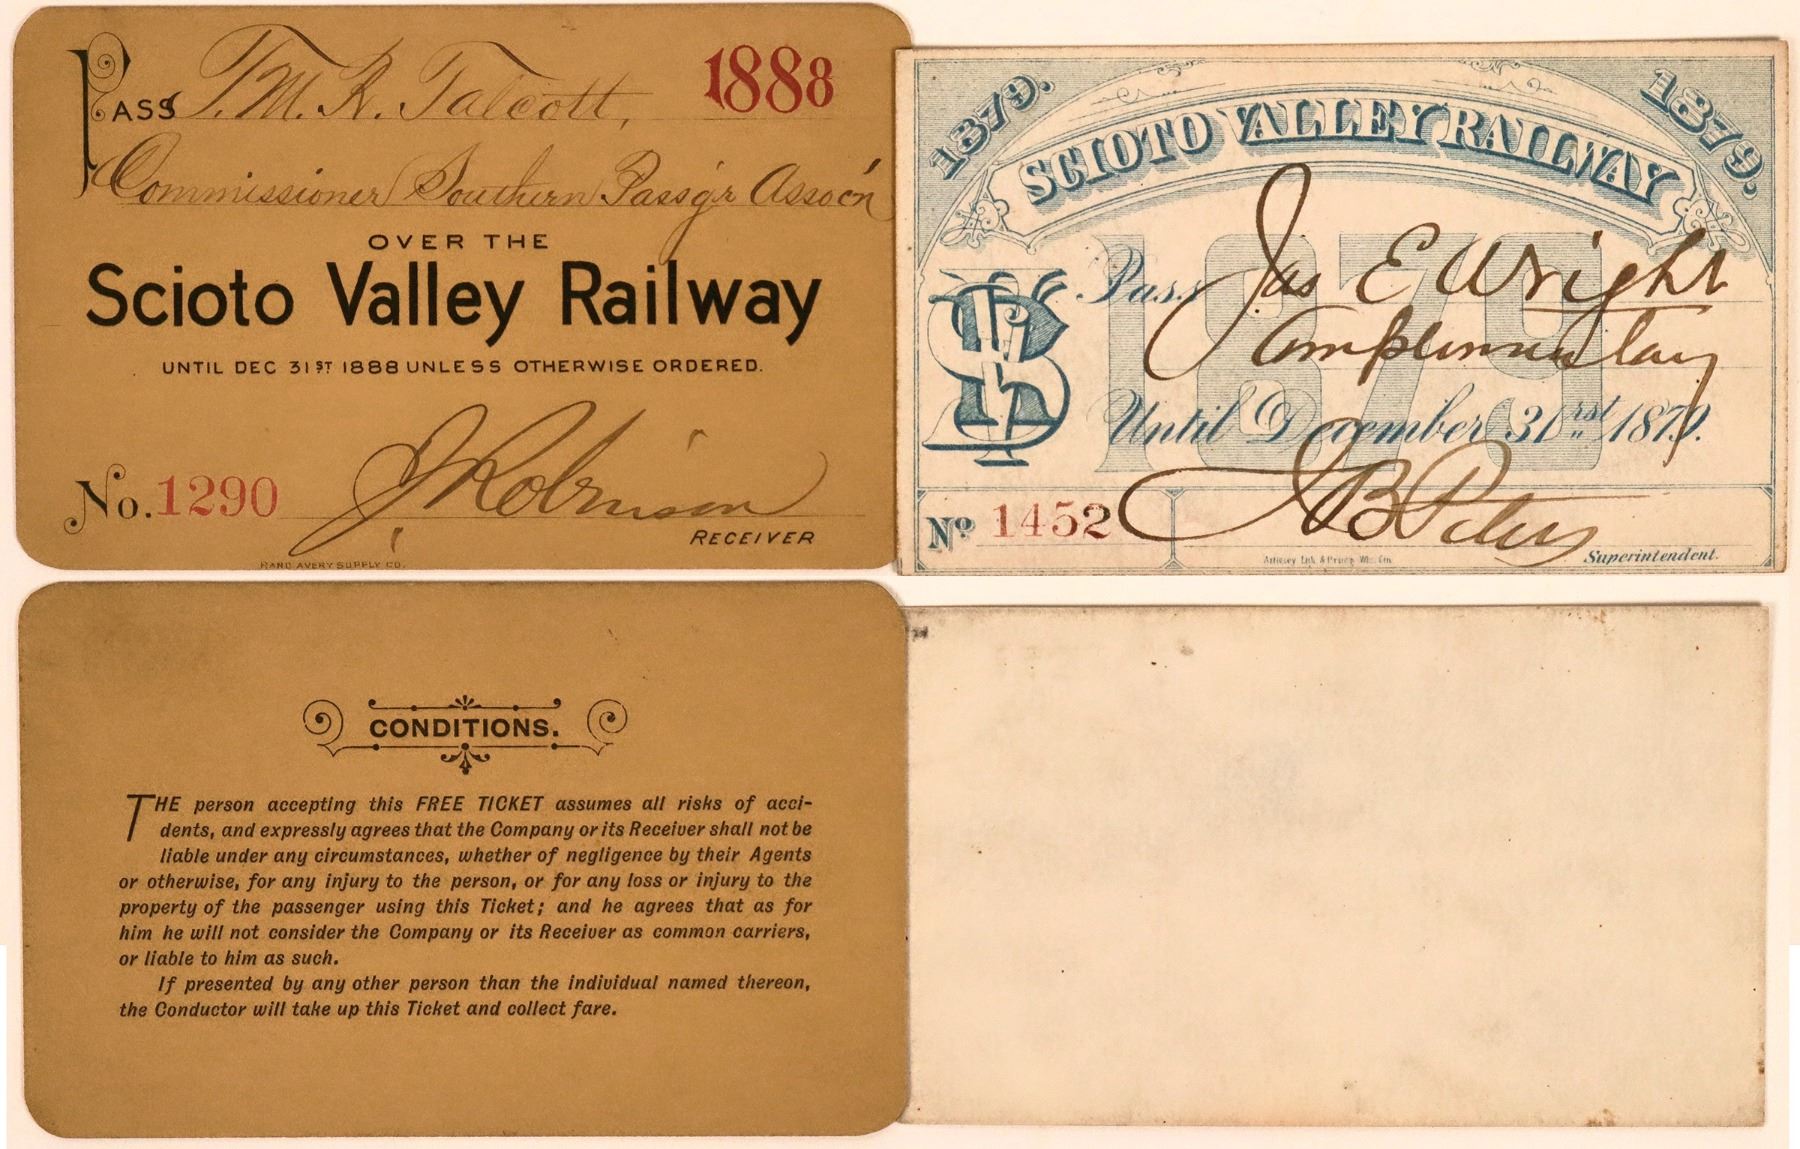 PASS T. M. R. Talcott, 1888
Commissioner Southern Passg'r Assoc'n
OVER THE
Scioto Valley Railway
UNTIL DEC 31ST 1888 UNLESS OTHERWISE ORDERED.
No. 1290 J Robinson
RECEIVER
RAND AVERY SUPPLY CO.
1879. 1879.
SCIOTO VALLEY RAILWAY
1879
Pass Jas E Wright
Complimentary
Until December 31rst 1879.
No 1452 J B Peters
Superintendent.
CONDITIONS.
THE person accepting this FREE TICKET assumes all risks of acci-
dents, and expressly agrees that the Company or its Receiver shall not be
liable under any circumstances, whether of negligence by their Agents
or otherwise, for any injury to the person, or for any loss or injury to the
property of the passenger using this Ticket; and he agrees that as for
him he will not consider the Company or its Receiver as common carriers,
or liable to him as such.
If presented by any other person than the individual named thereon,
the Conductor will take up this Ticket and collect fare.